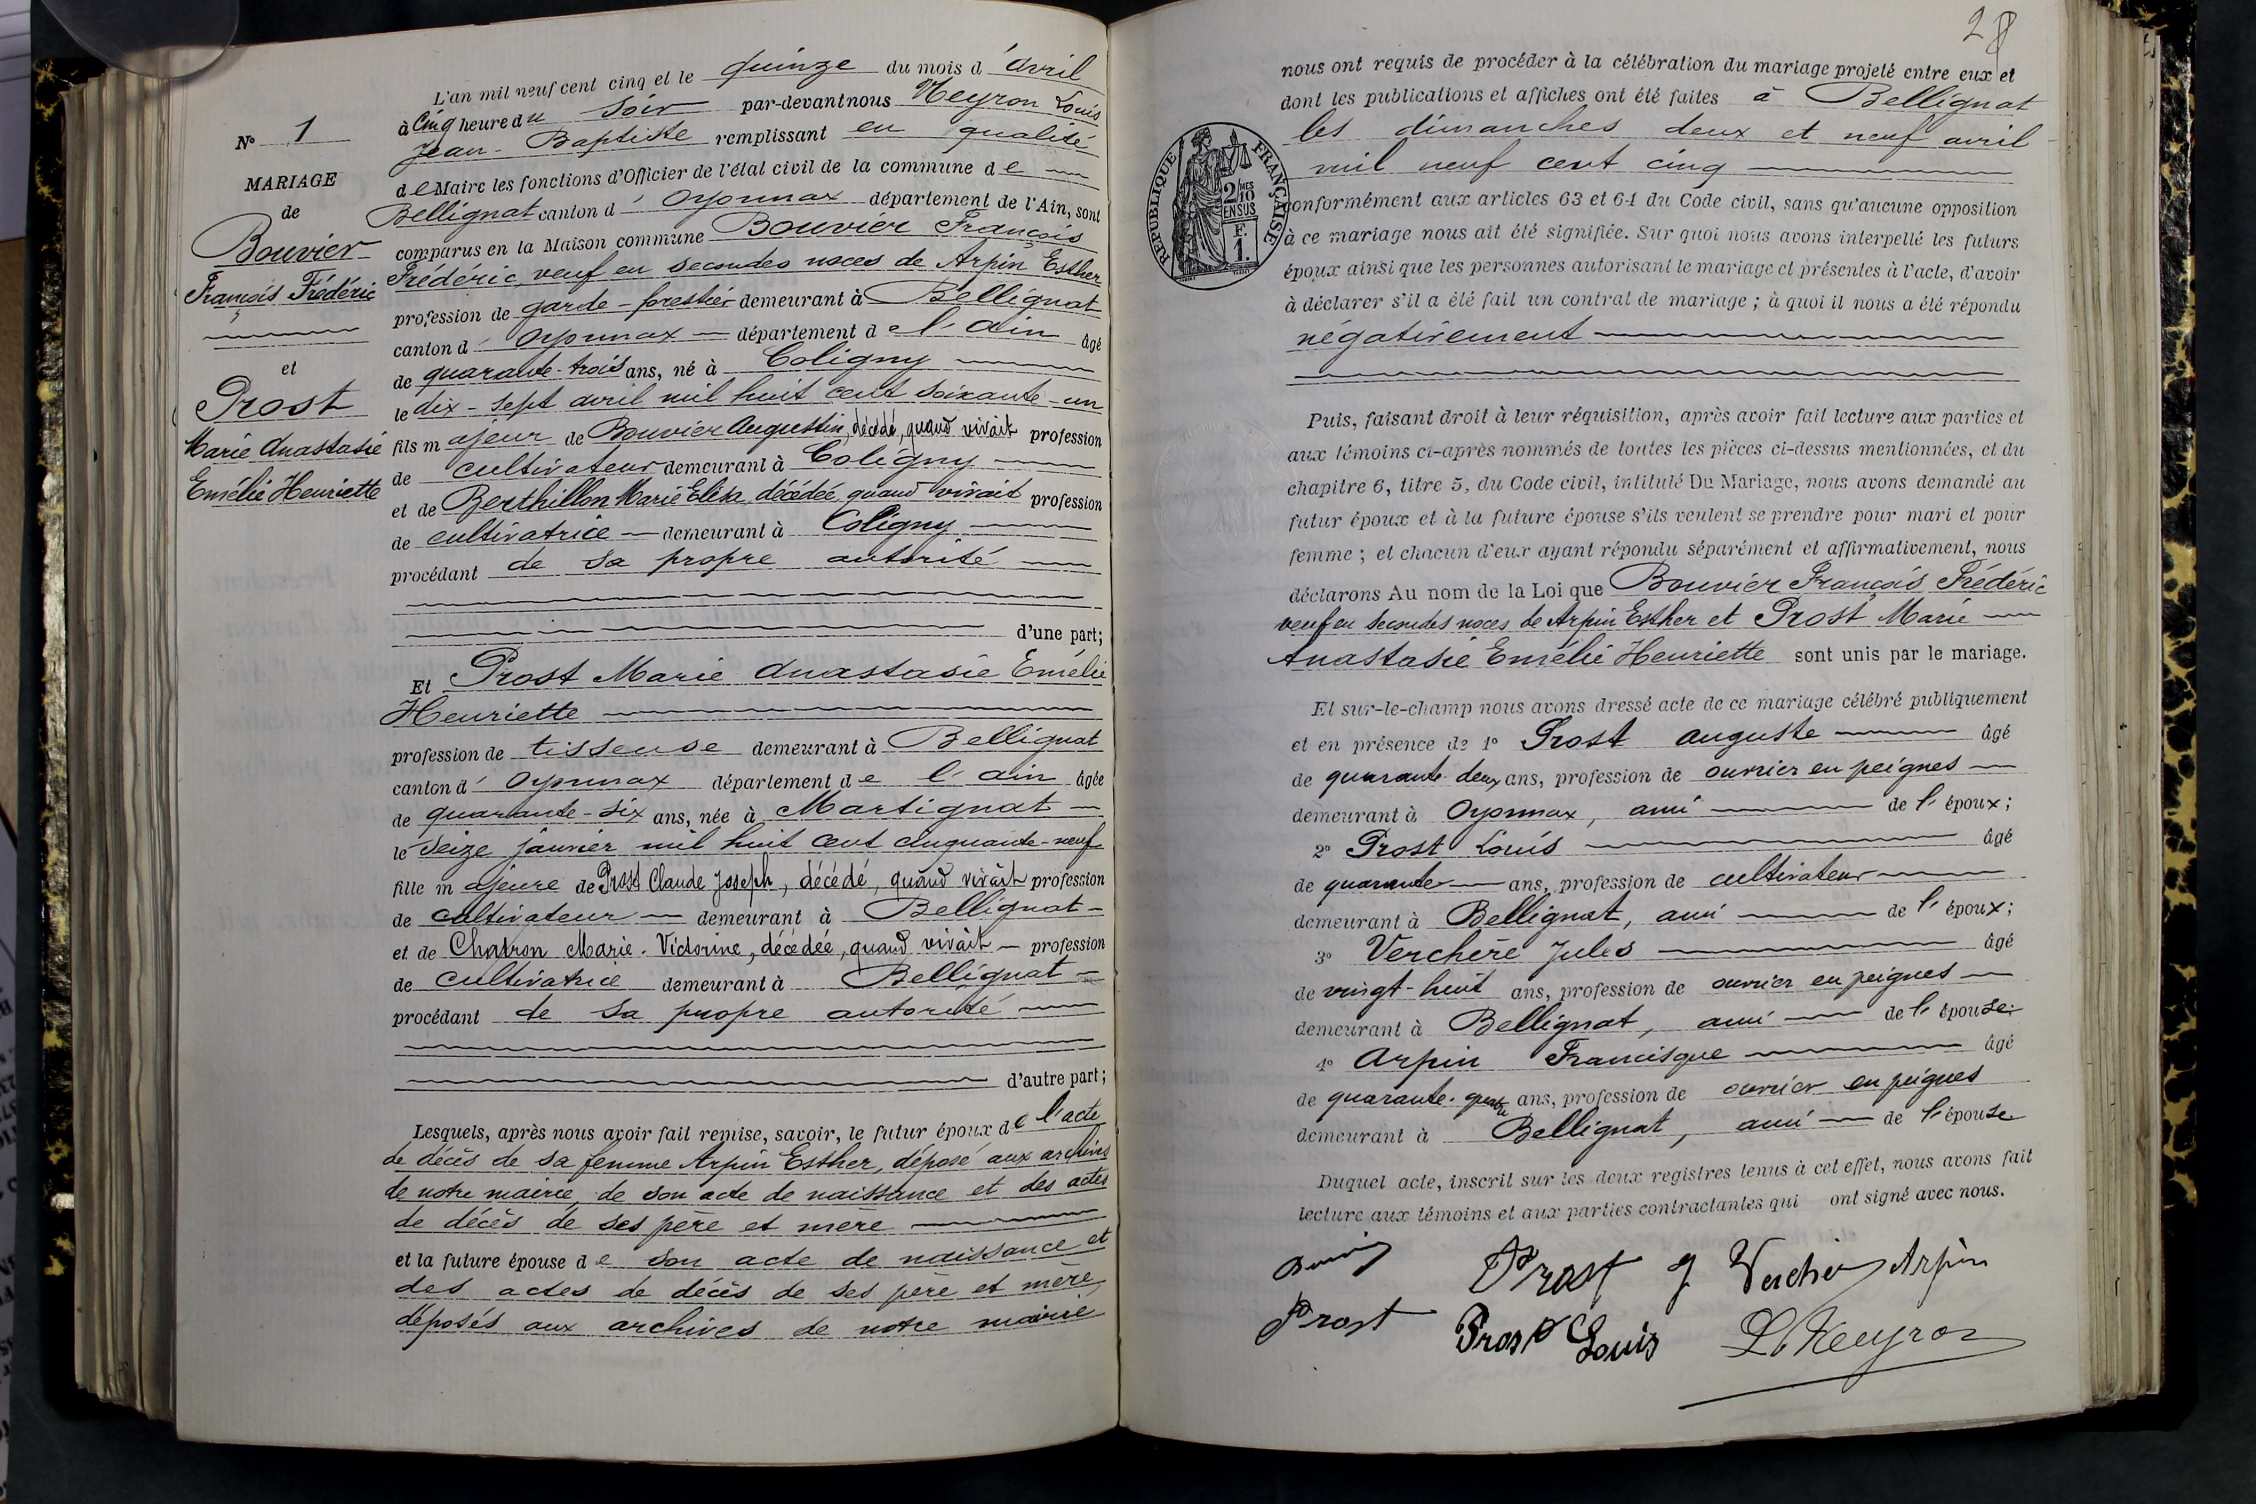 N° 1
MARIAGE
de
Bouvier
François Frédéric
et
Prost
Marie Anastasie
Emélie Henriette
L'an mil neuf cent cinq et le quinze du mois d'avril
à cinq heure du soir par-devant nous Neyron Louis
Jean-Baptiste remplissant en qualité
de Maire les fonctions d'Officier de l'état civil de la commune de
Bellignat canton d'Oyonnax département de l'Ain, sont
comparus en la Maison commune Bouvier François
Frédéric, veuf en secondes noces de Arpin Esther
profession de garde-forestier demeurant à Bellignat
canton d'Oyonnax département de l'Ain âgé
de quarante-trois ans, né à Coligny
le dix-sept avril mil huit cent soixante-un
fils majeur de Bouvier Augustin, décédé, quand vivait profession
de cultivateur demeurant à Coligny
et de Berthillon Marie Elisa, décédée, quand vivait profession
de cultivatrice demeurant à Coligny
procédant de sa propre autorité
d'une part;
Et Prost Marie Anastasie Emélie
Henriette
profession de tisseuse demeurant à Bellignat
canton d'Oyonnax département de l'Ain âgée
de quarante-six ans, née à Martignat
le seize janvier mil huit cent cinquante-neuf
fille majeure de Prost Claude Joseph, décédé, quand vivait profession
de cultivateur demeurant à Bellignat
et de Chatron Marie-Victorine, décédée, quand vivait profession
de cultivatrice demeurant à Bellignat
procédant de sa propre autorité
d'autre part;
Lesquels, après nous avoir fait remise, savoir, le futur époux de l'acte
de décès de sa femme Arpin Esther, déposé aux archives
de notre mairie, de son acte de naissance et des actes
de décès de ses père et mère
et la future épouse de son acte de naissance et
des actes de décès de ses père et mère,
déposés aux archives de notre mairie
28
nous ont requis de procéder à la célébration du mariage projeté entre eux et
dont les publications et affiches ont été faites à Bellignat
les dimanches deux et neuf avril
mil neuf cent cinq
RÉPUBLIQUE FRANÇAISE
2/10 MES
EN SUS
F.
1.
conformément aux articles 63 et 64 du Code civil, sans qu'aucune opposition
à ce mariage nous ait été signifiée. Sur quoi nous avons interpellé les futurs
époux ainsi que les personnes autorisant le mariage et présentes à l'acte, d'avoir
à déclarer s'il a été fait un contrat de mariage ; à quoi il nous a été répondu
négativement
Puis, faisant droit à leur réquisition, après avoir fait lecture aux parties et
aux témoins ci-après nommés de toutes les pièces ci-dessus mentionnées, et du
chapitre 6, titre 5, du Code civil, intitulé Du Mariage, nous avons demandé au
futur époux et à la future épouse s'ils veulent se prendre pour mari et pour
femme ; et chacun d'eux ayant répondu séparément et affirmativement, nous
déclarons Au nom de la Loi que Bouvier François Frédéric
veuf en secondes noces de Arpin Esther et Prost Marie
Anastasie Emélie Henriette sont unis par le mariage.
Et sur-le-champ nous avons dressé acte de ce mariage célébré publiquement
et en présence de 1° Prost Auguste âgé
de quarante-deux ans, profession de ouvrier en peignes
demeurant à Oyonnax, ami de l'époux;
2° Prost Louis âgé
de quarante ans, profession de cultivateur
demeurant à Bellignat, ami de l'époux;
3° Verchère Jules âgé
de vingt-huit ans, profession de ouvrier en peignes
demeurant à Bellignat, ami de l'épouse;
4° Arpin Francisque âgé
de quarante-quatre ans, profession de ouvrier en peignes
demeurant à Bellignat, ami de l'épouse
Duquel acte, inscrit sur les deux registres tenus à cet effet, nous avons fait
lecture aux témoins et aux parties contractantes qui ont signé avec nous.
Prost J Verchère Arpin
Prost Prost Louis L Neyron